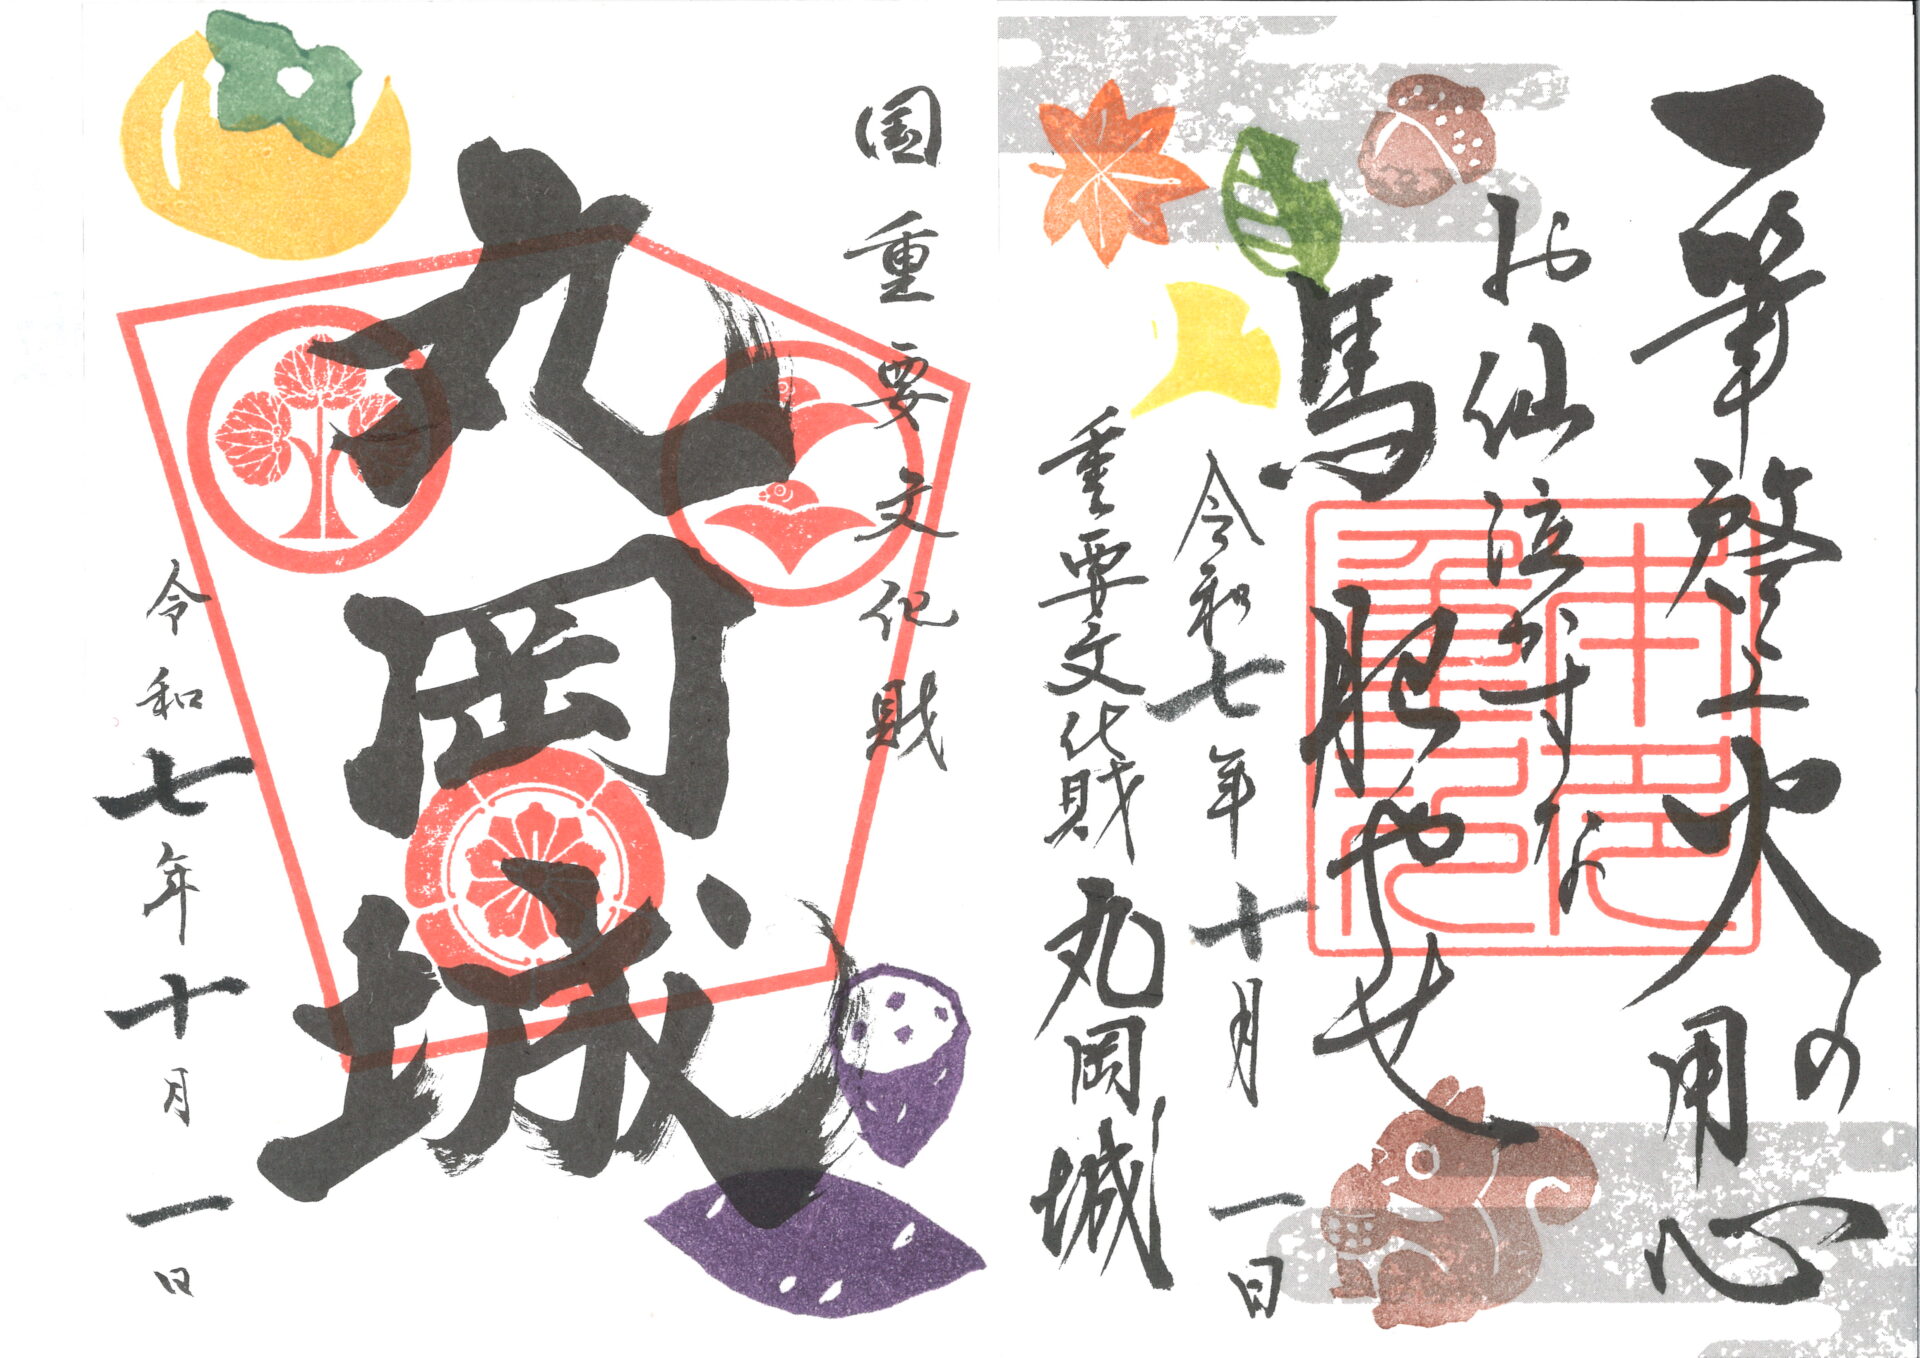 一筆啓上火の用心
お仙泣かすな
馬肥やせ
令和七年十月一日
重要文化財 丸岡城
国重要文化財
丸岡城
令和七年十月一日